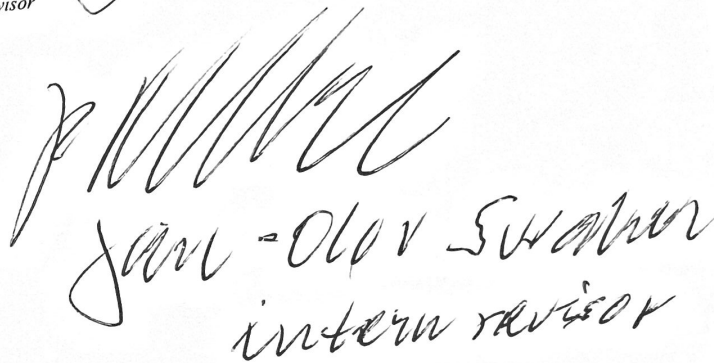 visor
Jan-Olov Svahn
intern revisor